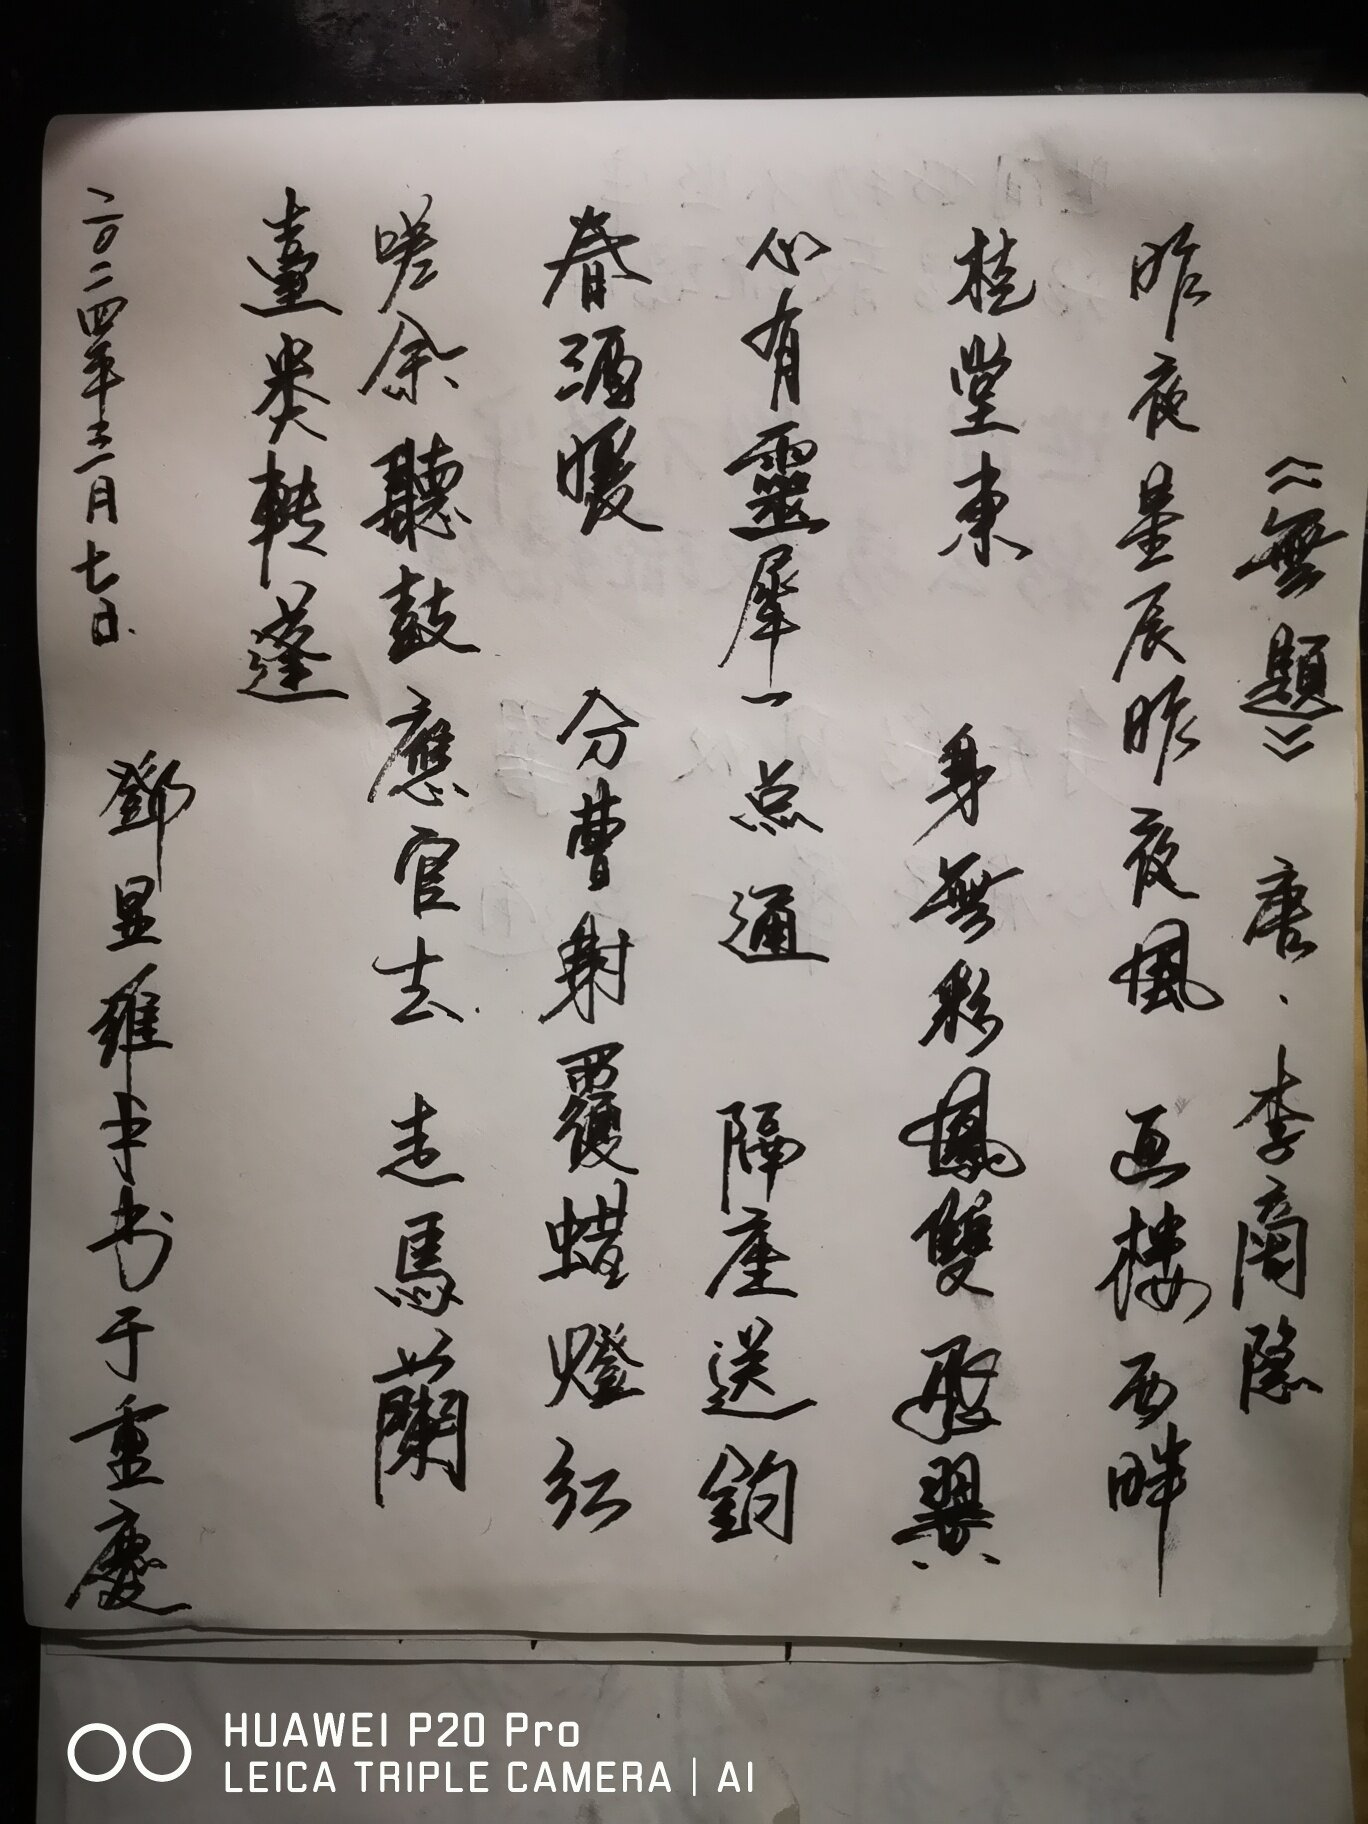 《無題》 唐·李商隐
昨夜星辰昨夜風 画樓西畔
桂堂東 身無彩鳳雙飛翼
心有靈犀一点通 隔座送鈎
春酒暖 分曹射覆蜡燈红
嗟余聽鼓應官去 走馬蘭
臺类转蓬
二〇二四年十二月七日 鄧显維书于重慶
HUAWEI P20 Pro
LEICA TRIPLE CAMERA | AI